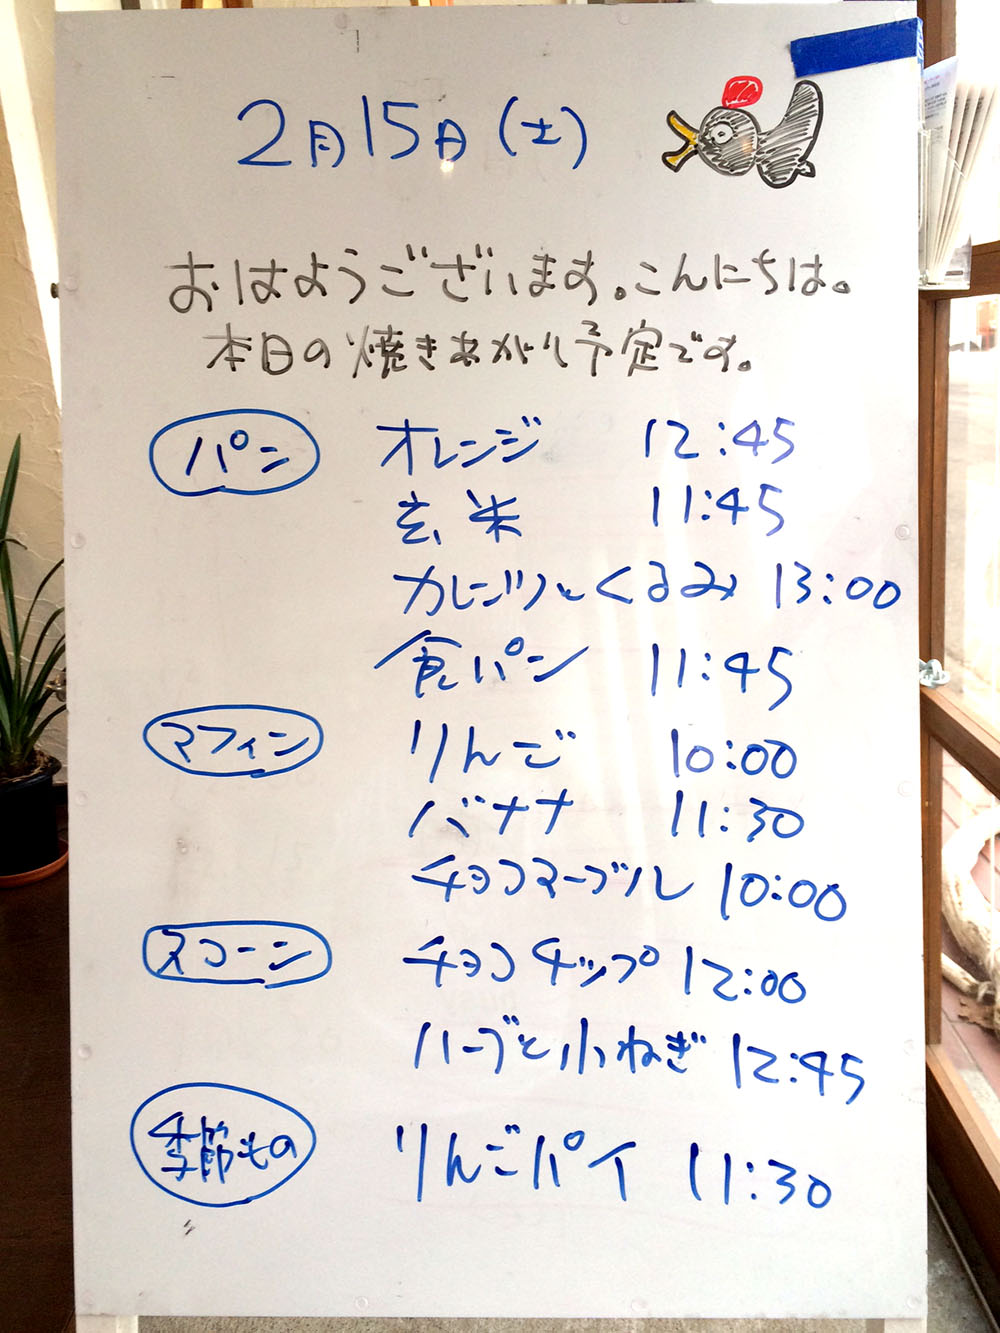 2月15日(土)
おはようございます。こんにちは。
本日の焼きあがり予定です。
パン オレンジ 12:45
玄米 11:45
カレンツとくるみ 13:00
食パン 11:45
マフィン りんご 10:00
バナナ 11:30
チョコマーブル 10:00
スコーン チョコチップ 12:00
ハーブと小ねぎ 12:45
季節もの りんごパイ 11:30